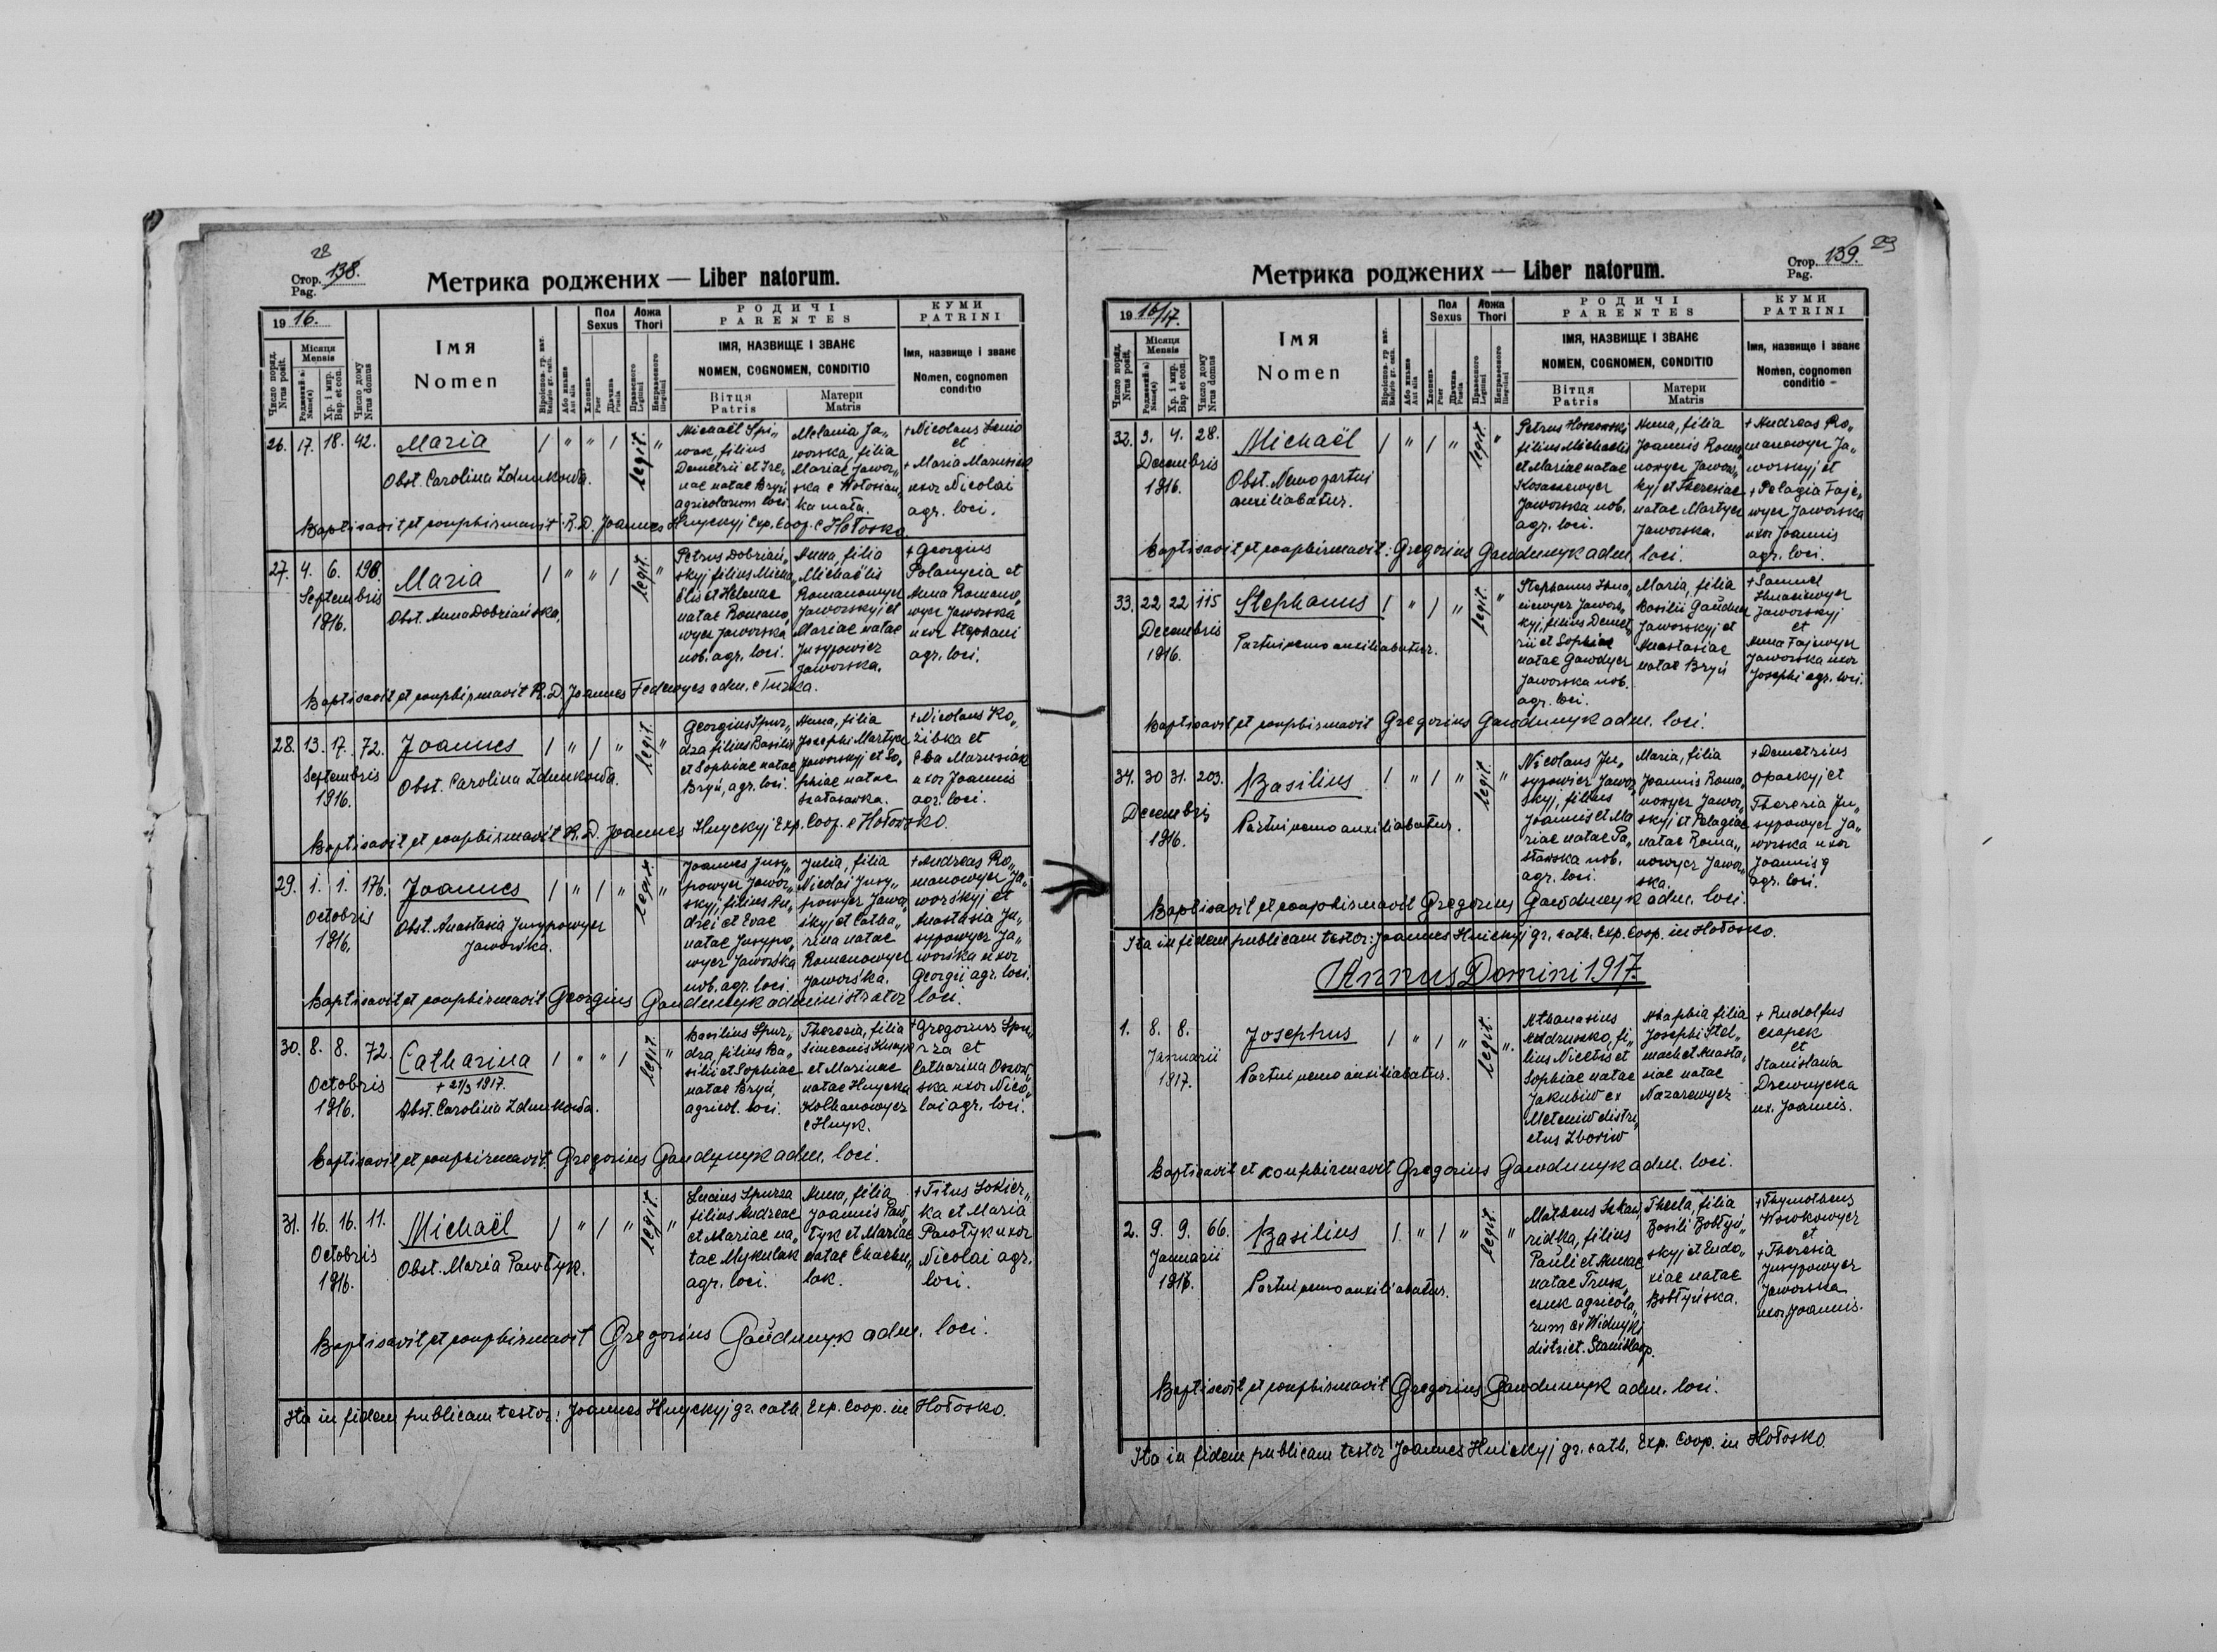 28
Стор. 138.
Pag.
Метрика роджених — Liber natorum.
1916.
Число поряд.
Nrus posit.
Місяця
Mensis
Число дому
Nrus domus
Імя
Nomen
Пол
Sexus
Ложа
Thori
РОДИЧІ
PARENTES
ІМЯ, НАЗВИЩЕ І ЗВАНЄ
NOMEN, COGNOMEN, CONDITIO
Вітця
Patris
Матери
Matris
КУМИ
PATRINI
Імя, назвище і званє
Nomen, cognomen
conditio
26. 17. 18. 42. Maria
Obst. Carolina Zdunkowa.
legit.
Michaël Spi„
wak, filius
Demetrii et Ire„
nae natae Bryń
agricolarum loci.
Melania Ja„
worska, filia
Mariae Jawor„
ska e Hołosian„
ka mała.
+ Nicolaus Senio
et
+ Maria Marusiak
uxor Nicolai
agr. loci.
Baptisavit et conphirmavit R. D. Joannes Hnyckyj Exp. Coop. e Hołosko.
27. 4. 6. 198. Maria
Septembris
1916.
Obst. Anna Dobriańska.
legit.
Petrus Dobriań„
skyj filius Micha„
ëlis et Helenae
natae Romano„
wycz Jaworska
nob. agr. loci.
Anna, filia
Michaëlis
Romanowycz
Jaworskyj et
Mariae natae
Jusypowicz
Jaworska.
+ Georgius
Polanycia et
Anna Romano„
wycz Jaworska
uxor Stephani
agr. loci.
Baptisavit et conphirmavit R. D. Joannes Fedewycz adm. e Turka.
28. 13. 17. 72. Joannes
Septembris
1916.
Obst. Carolina Zdunkowa.
legit.
Georgius Spur„
dza filius Basilii
et Sophiae natae
Bryń, agr. loci.
Anna, filia
Josephi Martycz
Jaworskyj et So„
phiae natae
+ Nicolaus Ko„
żibka et
Eva Marusiak
uxor Joannis
agr. loci.
Baptisavit et conphirmavit R. D. Joannes Hnyckyj Exp. Coop. e Hołosko.
29. 1. 1. 176. Joannes
Octobris
1916.
Obst. Anastasia Jusypowycz
Jaworska.
legit.
Joannes Jusy„
powycz Jawor„
skyj, filius An„
drei et Evae
natae Jusypo„
wycz Jaworska
nob. agr. loci.
Julia, filia
Nicolai Jusy„
powycz Jawor„
skyj et Catha„
rina natae
Romanowycz
Jaworska.
+ Andreas Ro„
manowycz Ja„
worskyj et
Anastasia Ju„
sypowycz Ja„
worska uxor
Georgii agr. loci.
Baptisavit et conphirmavit Georgius Gawdunyk administrator loci.
30. 8. 8. 72. Catharina
+ 21/3 1917.
Octobris
1916.
Obst. Carolina Zdunkowa.
legit.
Basilius Spur„
dza, filius Ba„
silii et Sophiae
natae Bryń,
agricol. loci.
Theresia, filia
Simeonis Hnyp
et Marinae
natae Hnycka
Kolhanowycz
e Hnyk.
+ Gregorius Spu„
rza et
Catharina
ska uxor Nico„
lai agr. loci.
Baptisavit et conphirmavit Gregorius Gaudynyk adm. loci.
31. 16. 16. 11. Michaël
Octobris
1916.
Obst. Maria Pawłyk.
legit.
Lucius Spurza
filius Andreae
et Mariae na„
tae Mykulak
agr. loci.
Anna, filia
Joannis Paw„
łyk et Mariae
natae
lak.
+ Titus Sokier„
ka et Maria
Pawłyk uxor
Nicolai agr.
loci.
Baptisavit et conphirmavit Gregorius Gaŭdunyk adm. loci.
Ita in fidem publicam testor: Joannes Hnyckyj gr. cath. Exp. Coop. in Hołosko.
29
Стор. 139.
Pag.
Метрика роджених — Liber natorum.
1916/17.
Число поряд.
Nrus posit.
Місяця
Mensis
Число дому
Nrus domus
Імя
Nomen
Пол
Sexus
Ложа
Thori
РОДИЧІ
PARENTES
ІМЯ, НАЗВИЩЕ І ЗВАНЄ
NOMEN, COGNOMEN, CONDITIO
Вітця
Patris
Матери
Matris
КУМИ
PATRINI
Імя, назвище і званє
Nomen, cognomen
conditio
32. 3. 4. 28. Michaël
Decembris
1916.
Obst. Nemo partui
auxiliabatur.
legit.
Petrus
filius Michaelis
et Mariae natae
Jaworska nob.
agr. loci.
Anna, filia
Joannis Roma„
nowycz Jawors„
kyj et Theresiae
natae Martycz
Jaworska.
+ Andreas Ro„
manowycz Ja„
worskyj et
+ Pelagia Faje„
wycz Jaworska
uxor Joannis
agr. loci.
Baptisavit et conphirmavit: Gregorius Gaudunyk adm. loci.
33. 22 22 115 Stephanus
Decembris
1916.
Partui nemo auxiliabatur.
legit.
Stephanus Ihna„
ciewycz Jawors„
kyj, filius Demet„
rii et Sophiae
natae Gawdycz
Jaworska nob.
agr. loci.
Maria, filia
Basilii Gaŭdycz
Jaworskyj et
Anastasiae
natae Bryń
+ Samuel
Ihnaciewycz
Jaworskyj
et
Anna Fajewycz
Jaworska uxor
Josephi agr. loci.
Baptisavit et conphirmavit Gregorius Gawdunyk adm. loci.
34. 30 31. 203. Basilius
Decembris
1916.
Partui nemo auxiliabatur.
legit.
Nicolaus Ju„
sypowicz Jawor„
skyj, filius
Joannis et Ma
riae natae Pa„
sławska nob.
agr. loci.
Maria, filia
Joannis Roma„
nowycz Jawor„
skyj et Pelagiae
natae Roma„
nowycz Jawor„
ska.
+ Demetrius
Opackyj et
Theresia Ju„
sypowycz Ja„
worska uxor
Joannis
agr. loci.
Baptisavit et conphirmavit Gregorius Gawdunyk adm. loci.
Ita in fidem publicam testor: Joannes Hnickyj gr. cath. Exp. Coop. in Hołosko.
Annus Domini 1917.
1. 8. 8. Josephus
Januarii
1917.
Partui nemo auxiliabatur.
legit.
Athanasius
Andrusko, fi„
lius Nicetis et
Sophiae natae
Jakubiw ex
Meteniw distri„
ctus Zboriw
Agaphia filia
Josephi Stel„
mach et Anasta„
siae natae
Nazarewycz
+ Rudolfus
Czapek
et
Stanislawa
Drewnycka
ux. Joannis.
Baptisavit et conphirmavit Gregorius Gawdunyk adm. loci.
2. 9. 9. 66. Basilius
Januarii
1917.
Partui nemo auxiliabatur.
legit.
Matheus
ridka, filius
Pauli et Annae
natae
agricola„
rum ex Widnyki
district. Stanislaop.
Thecla, filia
Basili Bołtyń„
skyj et Eudo„
xiae natae
Bołtyńska.
+ Thymotheus
Wowkowycz
et
+ Theresia
Jusypowycz
Jaworska
uxor Joannis.
Baptisavit et conphirmavit Gregorius Gawdunyk adm. loci.
Ita in fidem publicam testor Joannes Hnickyj gr. cath. Exp. Coop. in Hołosko.